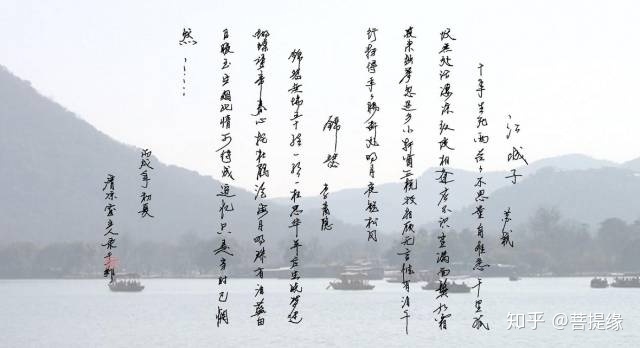 江城子 苏轼
十年生死两茫々不思量自难忘千里孤
坟无处话凄凉纵使相逢应不识尘满面鬓如霜
夜来幽梦忽还乡小轩窗正梳妆相顾无言惟有泪千
行料得年々肠断处明月夜短松冈
锦瑟 李商隐
锦瑟无端五十弦一弦一柱思华年庄生晓梦迷
蝴蝶望帝春心托杜鹃沧海月明珠有泪蓝田
日暖玉生烟此情可待成追忆只是当时已惘
然……
丙戌年初夏
清凉
知乎 @菩提缘